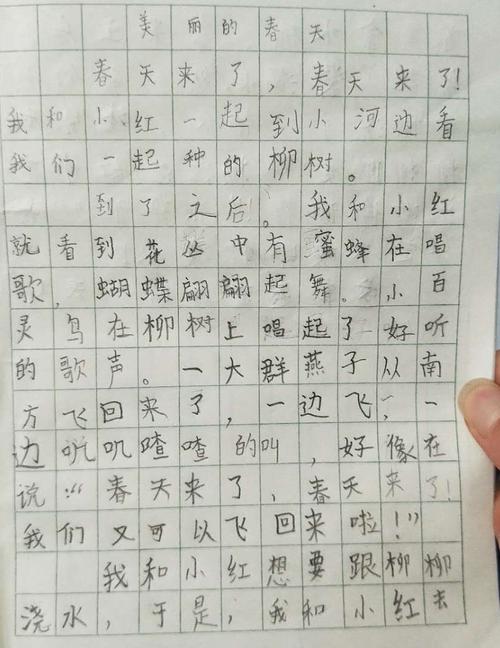 美丽的春天
春天来了，春天来了！
我和小红一起到小河边看
我们一起种的柳树。
到了之后。我和小红
就看到花丛中有蜜蜂在唱
歌，蝴蝶翩翩起舞。小百
灵鸟在柳树上唱起了好听
的歌声。一大群燕子从南
方飞回来了，一边飞，一
边叽叽喳喳的叫，好像在
说：“春天来了，春天来了！
我们又可以飞回来啦！”
我和小红想要跟柳柳
浇水，于是，我和小红去